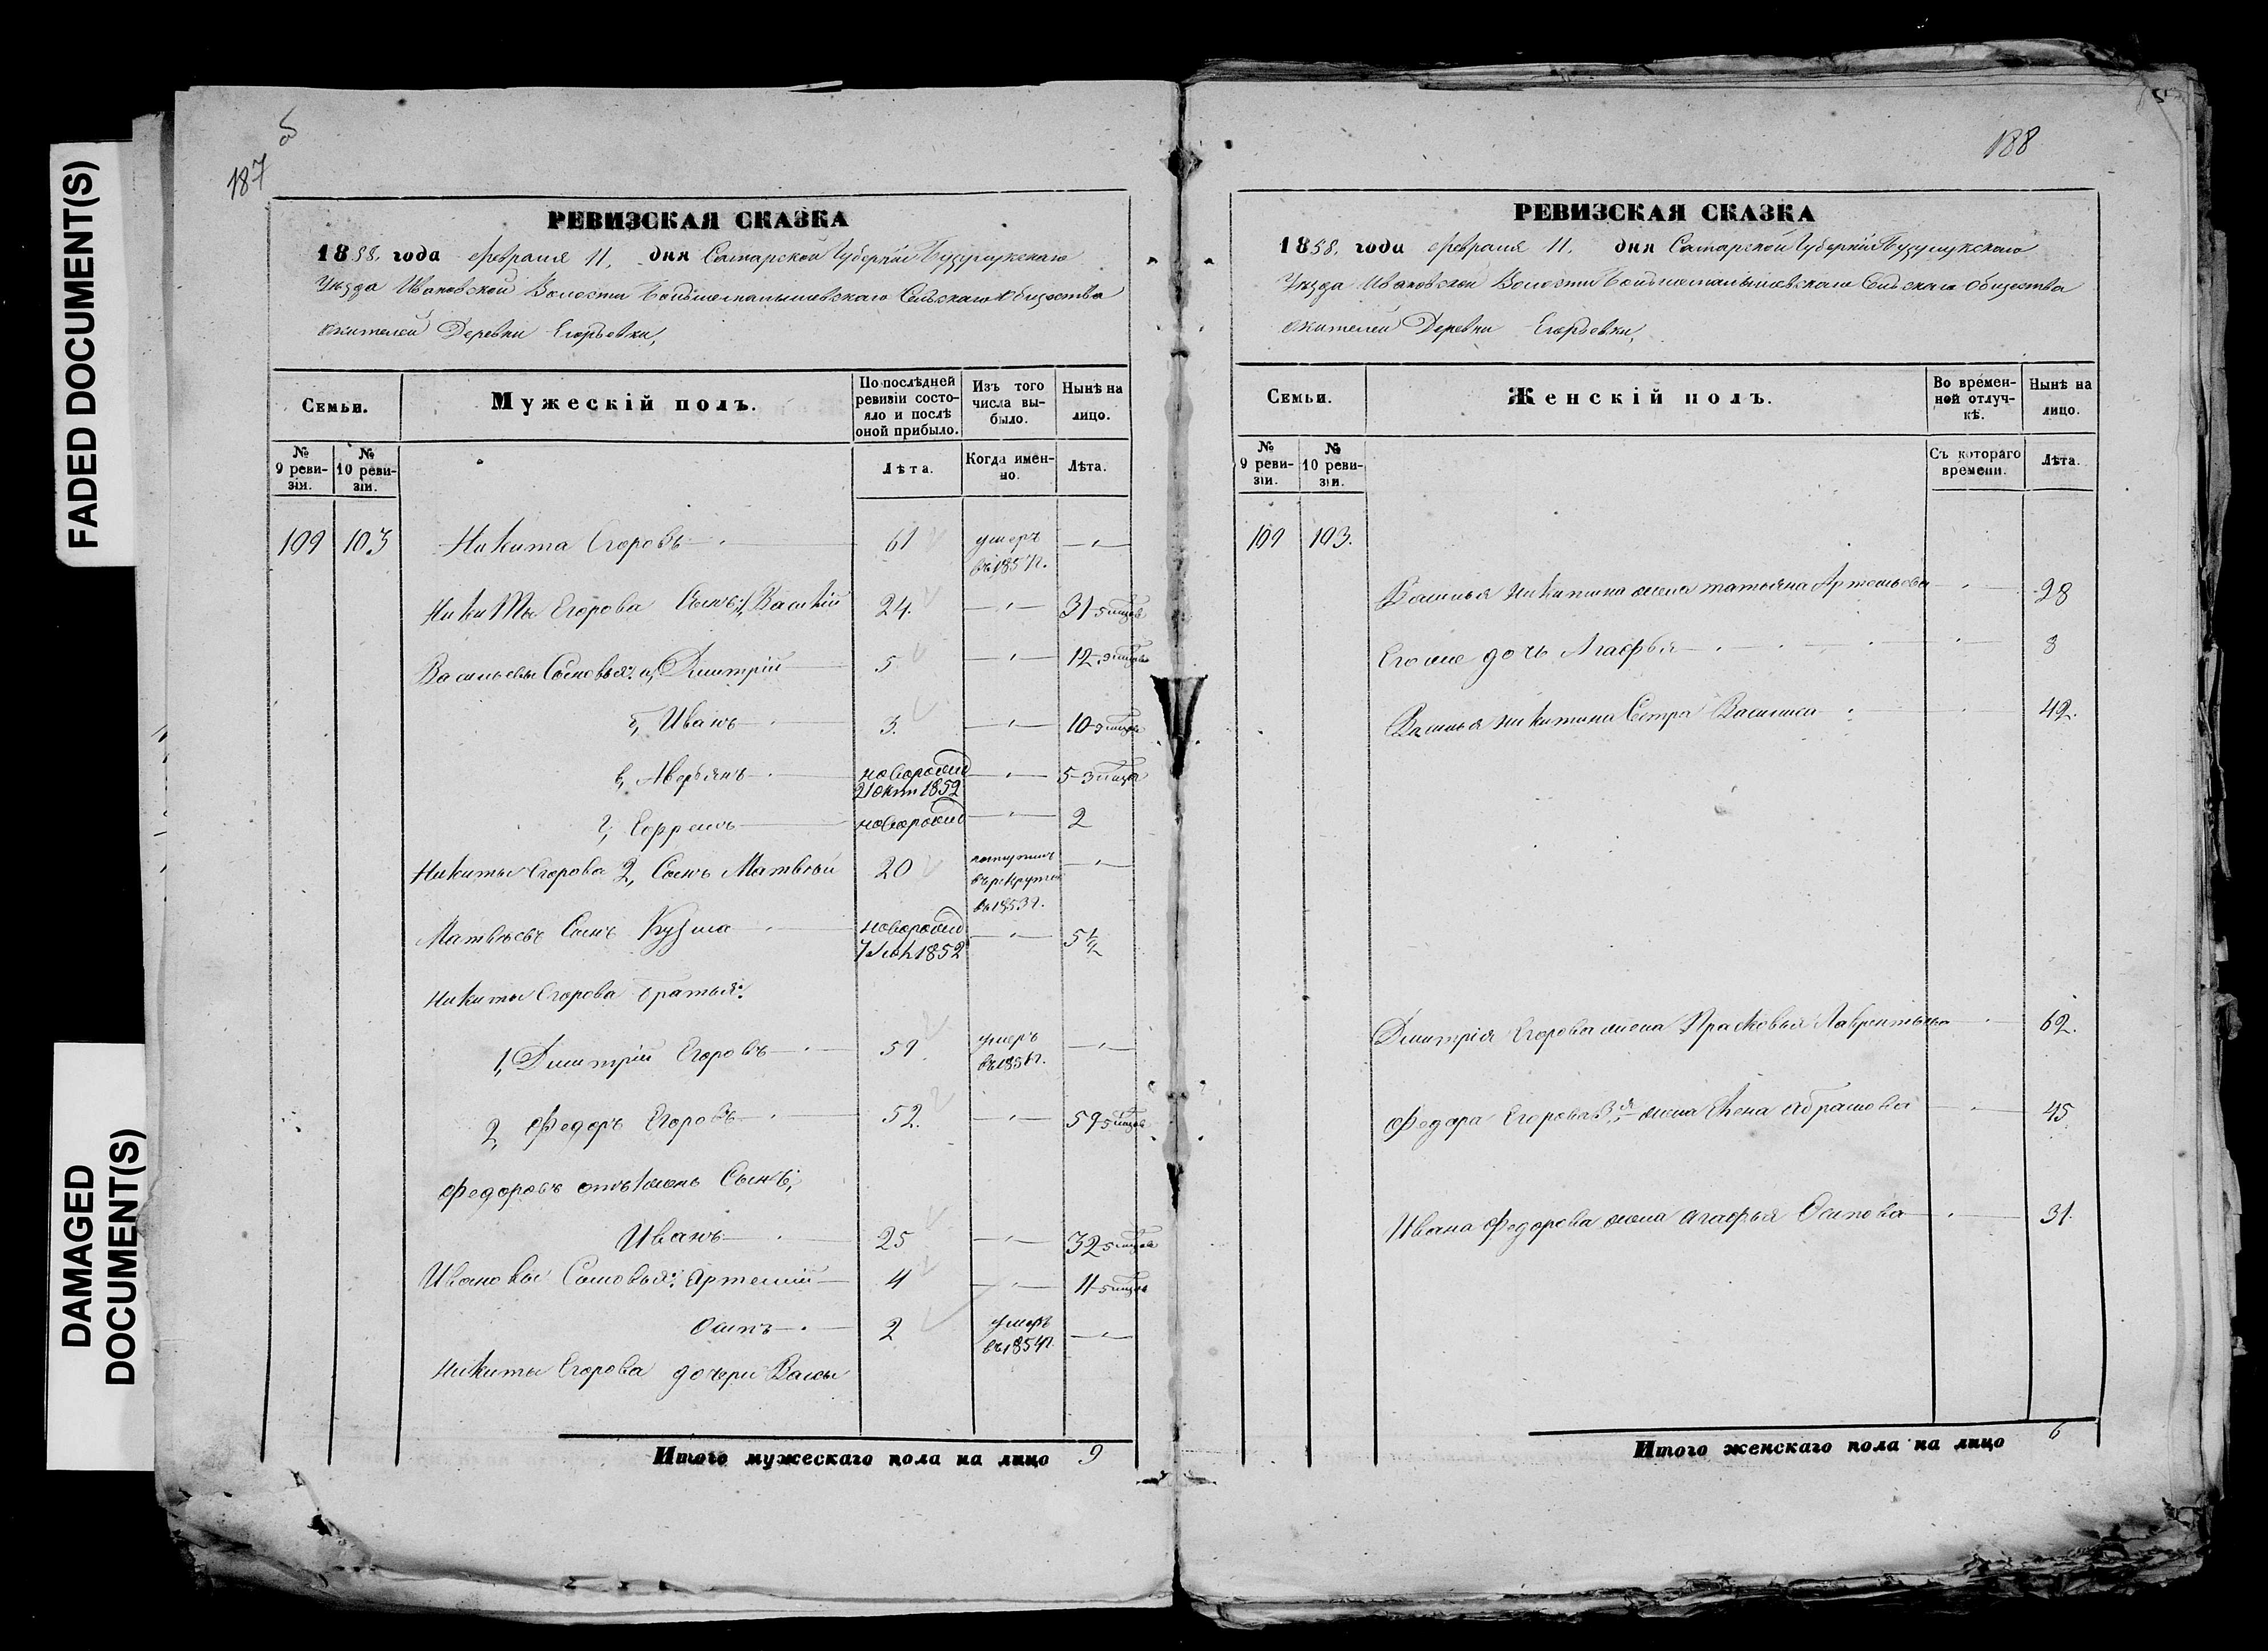 FADED DOCUMENT(S)
DAMAGED
DOCUMENT(S)
187
РЕВИЗСКАЯ СКАЗКА
1858. года февраля 11. дня Самарской Губерніи Бузулукскаго
Уѣзда Ивановской Волости Сельскаго Общества
жителей Деревни Егорьевки,
Семьи.
Мужескій полъ.
По послѣдней ревизіи состояло и послѣ оной прибыло.
Изъ того числа выбыло.
Нынѣ на лицо.
№ 9 ревизіи.
№ 10 ревизіи.
Лѣта.
Когда именно.
Лѣта.
109 103 Никита Егоровъ 61 умеръ
въ 185 г.
Никиты Егорова Сынъ: 1, Василій 24. 31
Васильевы Сыновья: а, Дмитрій 5. 12
б, Иванъ 3. 10
в, Аверьянъ новорожд 5
21 окт 1852
г, Ефремъ новорожд 2
Никиты Егорова 2, Сынъ Матвѣй 20 поступилъ
въ рекруты
въ 1853 г.
Матвѣевъ Сынъ Кузма новорожд 5 1/2
1852
Никиты Егорова братья:
1, Дмитрій Егоровъ 59 умеръ
въ 1856 г.
2, Федоръ Егоровъ 52. 59
Федоровъ отъ 1 жены Сынъ,
Иванъ 25 32
Ивановы Сыновья: Артемій 4 11
Осипъ 2 умеръ
въ 1854 г.
Никиты Егорова дочери
Итого мужескаго пола на лицо 9
188
РЕВИЗСКАЯ СКАЗКА
1858. года февраля 11. дня Самарской Губерніи Бузулукскаго
Уѣзда Ивановской Волости Сельскаго Общества
жителей Деревни Егорьевки,
Семьи.
Женскій полъ.
Во временной отлучкѣ.
Нынѣ на лицо.
№ 9 ревизіи.
№ 10 ревизіи.
Съ котораго времени.
Лѣта.
109 103.
Василья Никитина жена Татьяна Артемьева 28
Его же дочь Агафья 3
Василья Никитина Сестра Василиса 42.
Дмитрія Егорова жена Прасковья Лаврентьева 62.
Федора Егорова жена Елена Абрамова 45
Ивана Федорова жена Агафья Осипова 31.
Итого женскаго пола на лицо 6